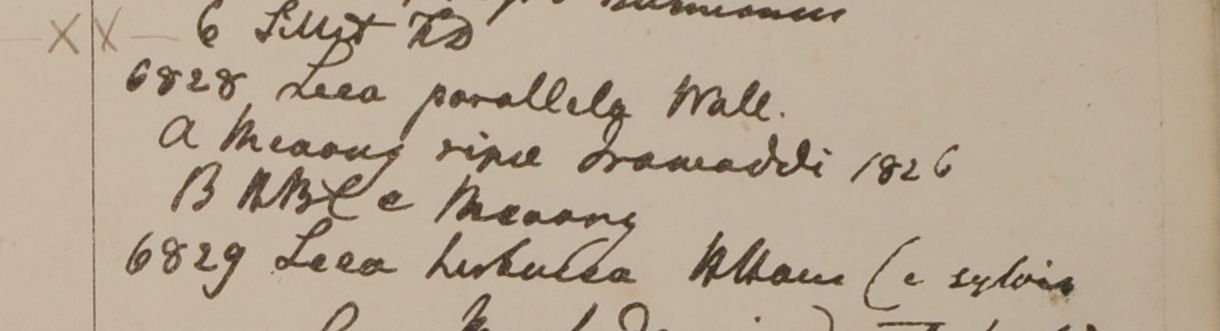 6 Sillet FD
6828 Leea parallela Wall.
a Meaong ripae Irawaddi 1826
B HBC e Meaong
6829 Leea herbacea HHam (e sylvis